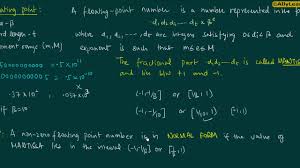 ating point:
A floating-point number is a number represented in the f
- β
.d₁d₂d₃---dₜ × βᵉ
d length - t
where d₁,d₂,---dₜ are integers satisfying 0≤dᵢ≤β and
onent range (m,M)
exponent is such that m≤e≤M
The fractional part d₁d₂---dₜ is called MANTISS
and lies b/w +1 and -1.
(-1,-1/β] or [1/β,1)
if β=10
(-1,-1/10] or [1/10,1)
: A non-zero floating point number is in NORMAL FORM if the value of
MANTISSA lies in the interval (-1,-1/β] or [1/β,1)